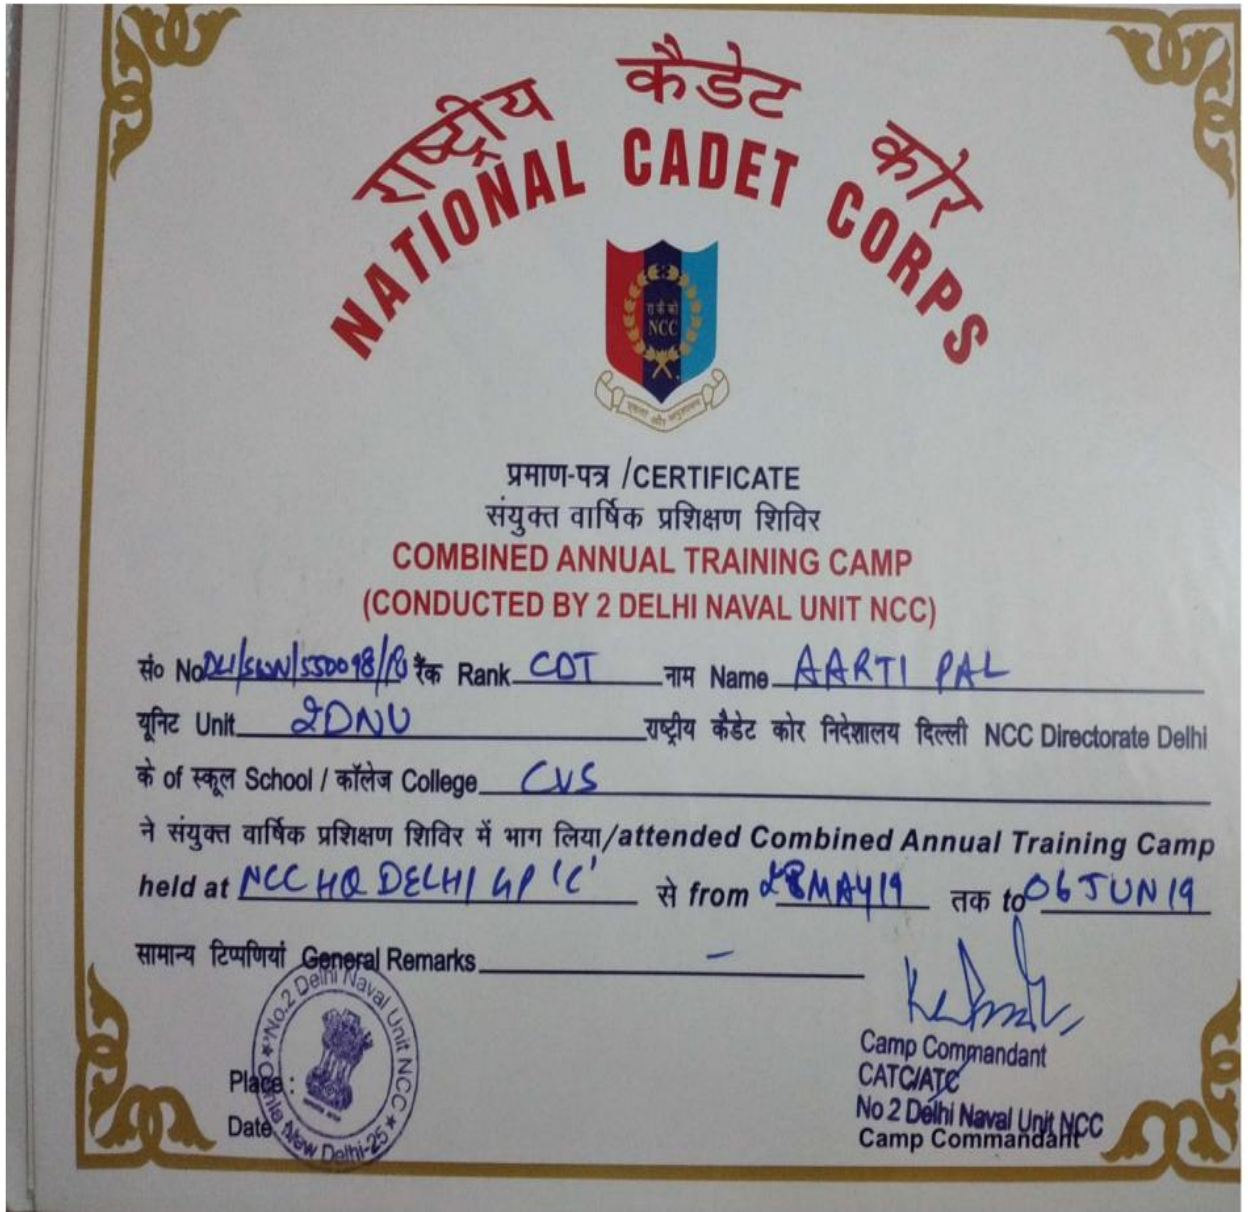 राष्ट्रीय कैडेट कोर
NATIONAL CADET CORPS
रा कै को
NCC
एकता और अनुशासन
प्रमाण-पत्र /CERTIFICATE
संयुक्त वार्षिक प्रशिक्षण शिविर
COMBINED ANNUAL TRAINING CAMP
(CONDUCTED BY 2 DELHI NAVAL UNIT NCC)
सं० No रैंक Rank CDT नाम Name AARTI PAL
यूनिट Unit 2DNU राष्ट्रीय कैडेट कोर निदेशालय दिल्ली NCC Directorate Delhi
के of स्कूल School / कॉलेज College CVS
ने संयुक्त वार्षिक प्रशिक्षण शिविर में भाग लिया/attended Combined Annual Training Camp
held at NCC HQ DELHI GP 'C' से from 28 MAY 19 तक to 06 JUN 19
सामान्य टिप्पणियां General Remarks -
No.2 Delhi Naval Unit NCC
New Delhi-25
Place :
Date
Camp Commandant
CATC/ATC
No 2 Delhi Naval Unit NCC
Camp Commandant